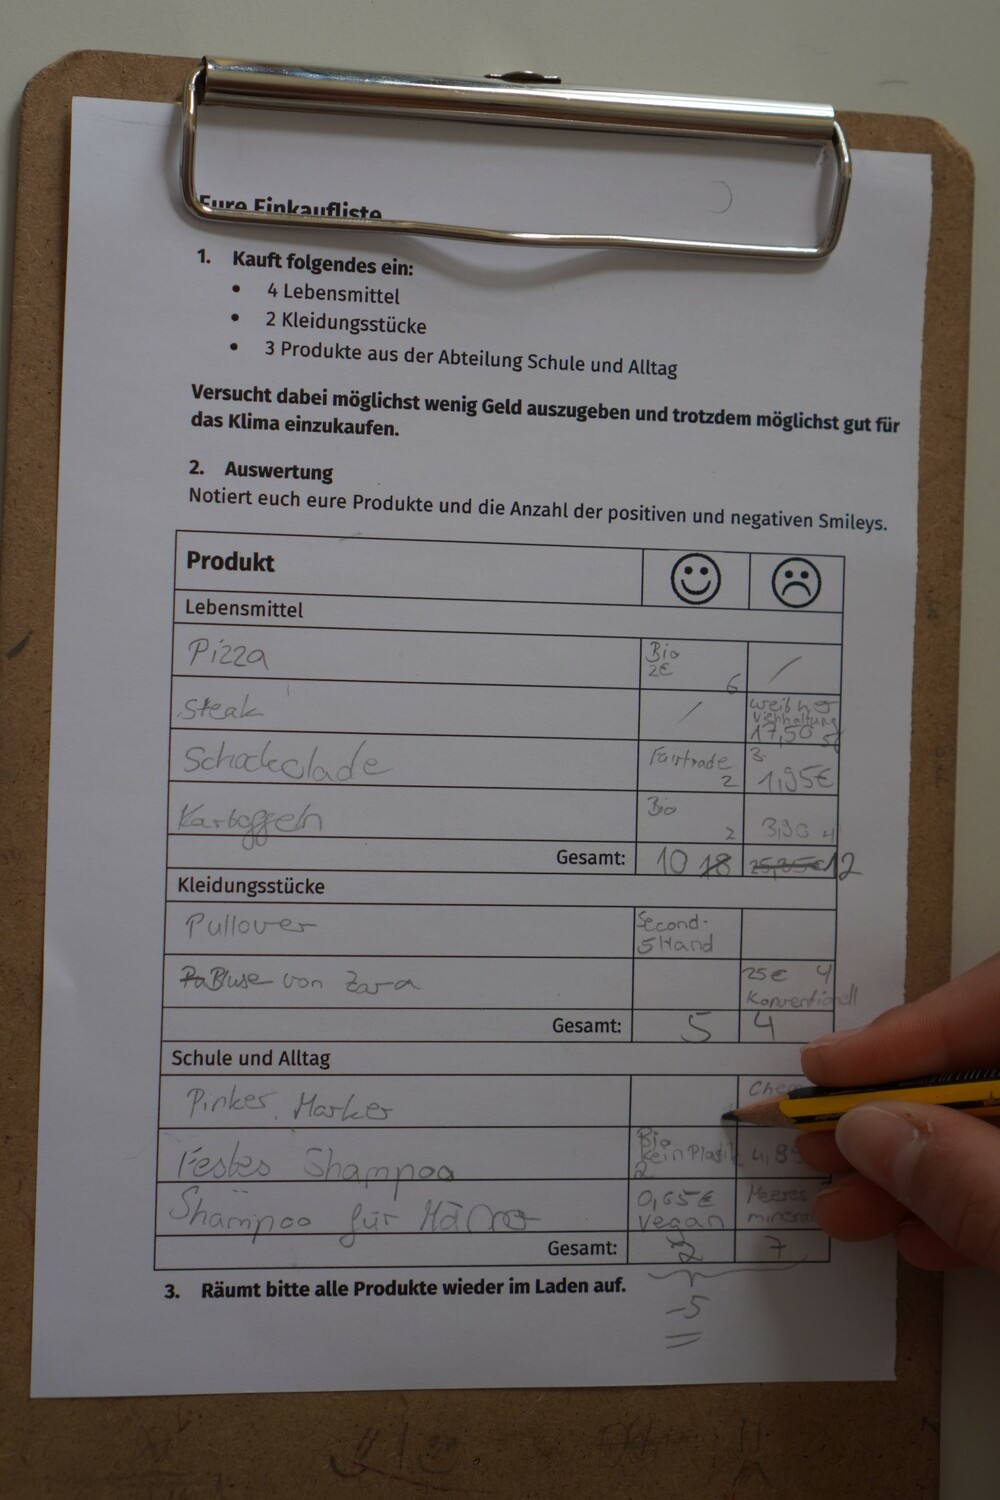 Eure Einkaufliste
1. Kauft folgendes ein:
• 4 Lebensmittel
• 2 Kleidungsstücke
• 3 Produkte aus der Abteilung Schule und Alltag
Versucht dabei möglichst wenig Geld auszugeben und trotzdem möglichst gut für
das Klima einzukaufen.
2. Auswertung
Notiert euch eure Produkte und die Anzahl der positiven und negativen Smileys.
Produkt
Lebensmittel
Pizza Bio /
2€ 6
Steak /
Viehhaltung
17,50
Schockolade Fairtrade 3
2 1,95€
Kartoggeln Bio
2 3,90 4
Gesamt: 10 18 25,35€ 12
Kleidungsstücke
Pullover Second-
5 Hand
Bluse von Zara 25€ 4
Konventionell
Gesamt: 5 4
Schule und Alltag
Pinker Marker Chem
Festes Shampoo Bio
kein Plastik 4,8
2
Shampoo für 0,65€ Meeres
vegan mineral
Gesamt: 2 7
3. Räumt bitte alle Produkte wieder im Laden auf.
-5